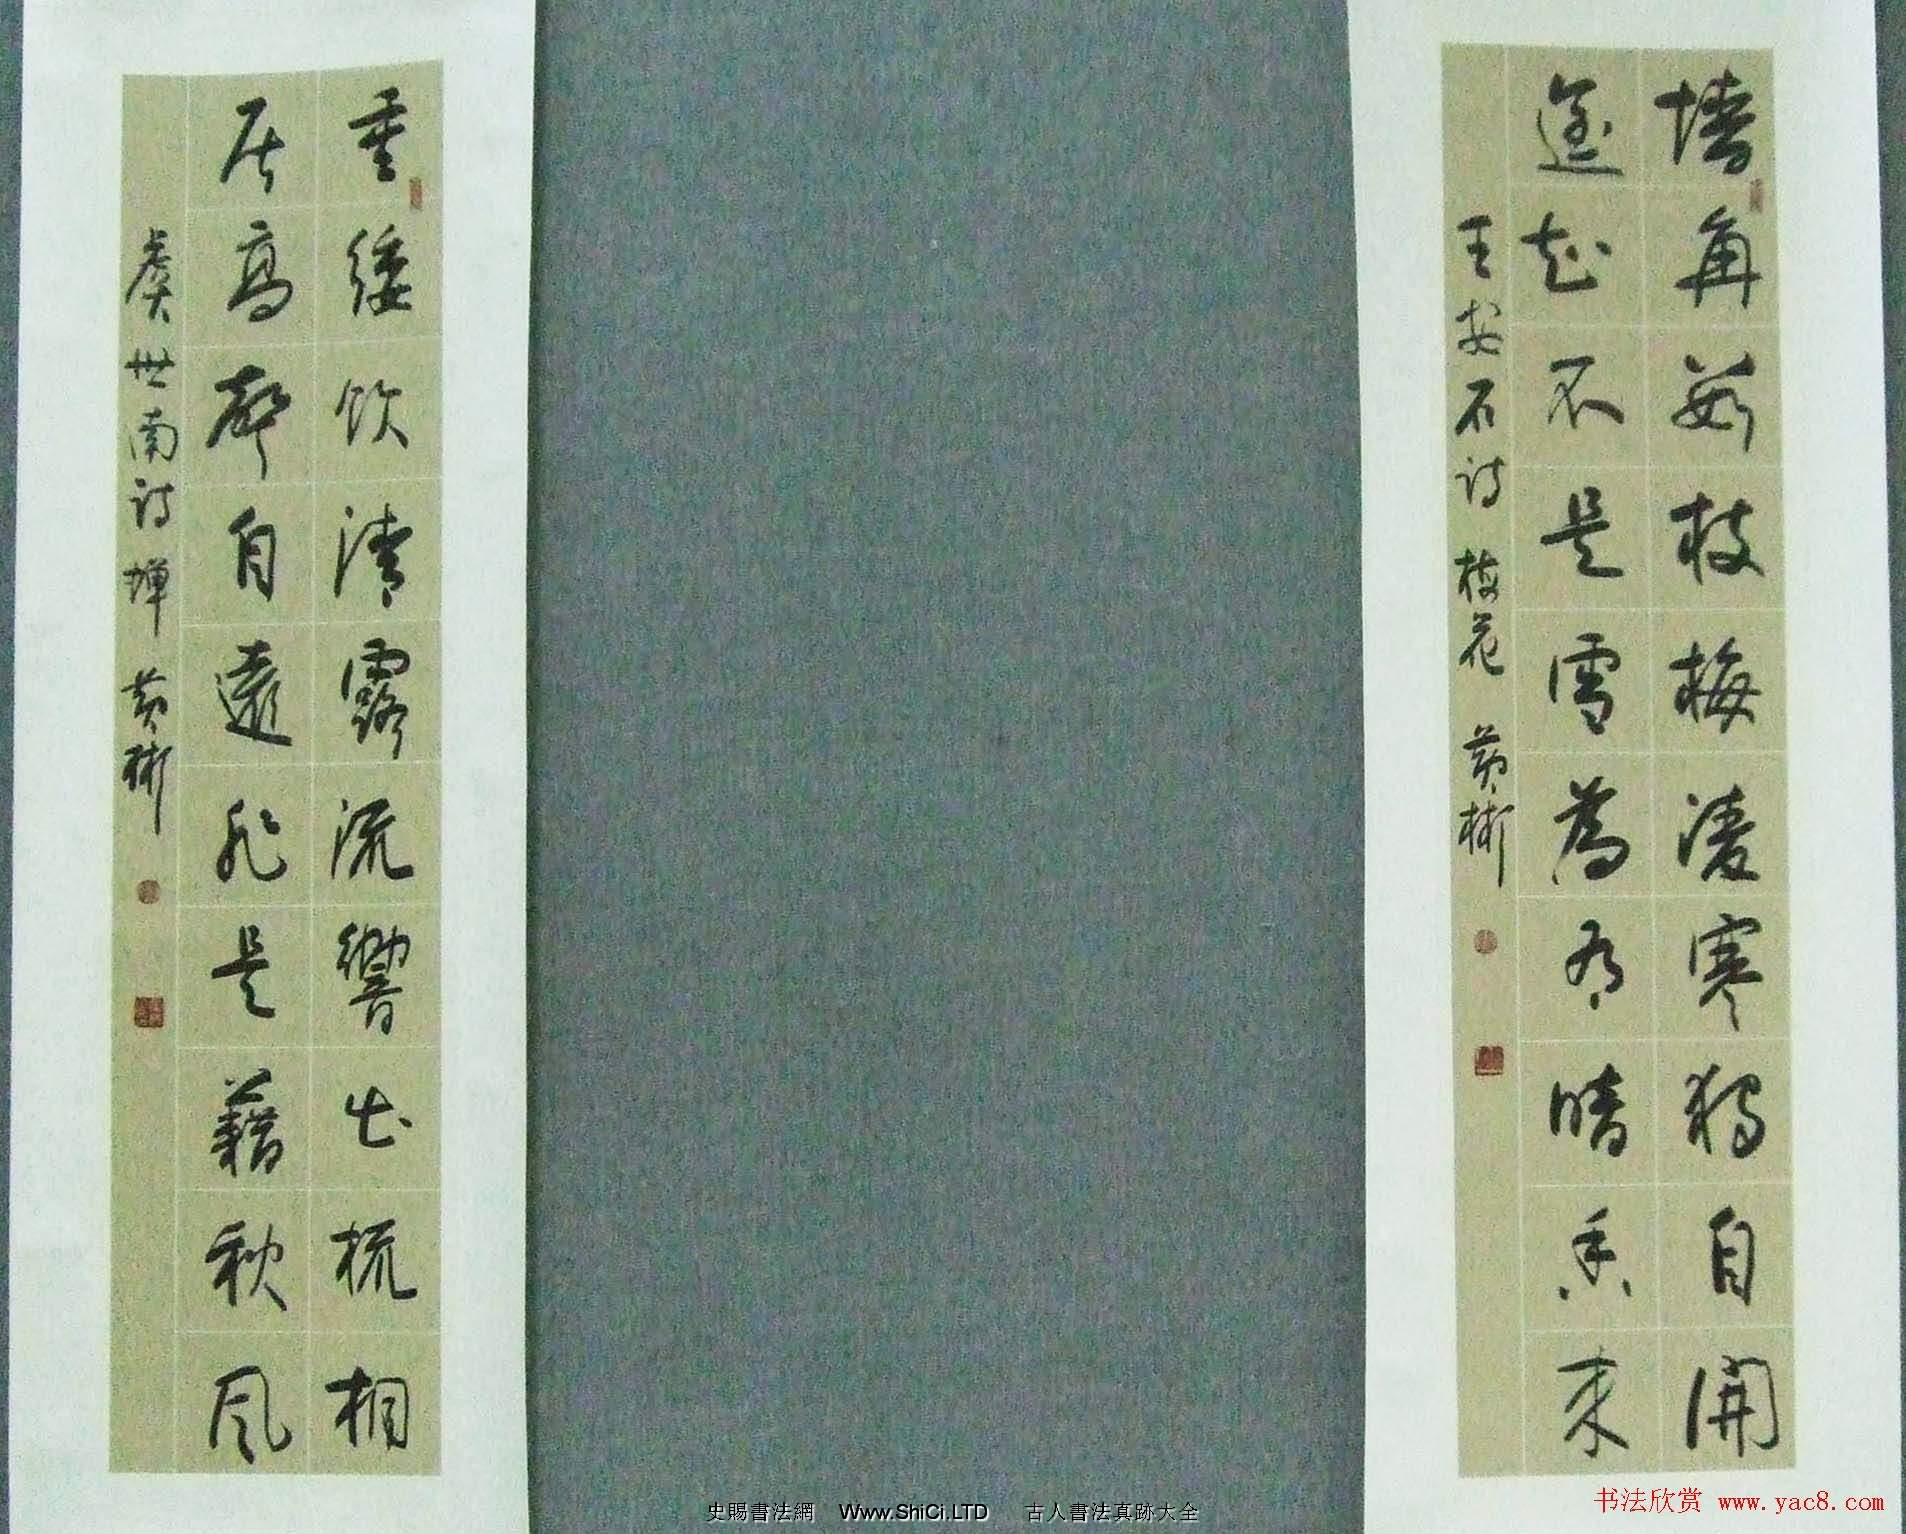 墙角数枝梅凌寒独自開
遥知不是雪為有暗香来
王安石诗 梅花 黄彬
垂緌饮清露流響出梳桐
居高聲自遠非是藉秋风
虞世南诗蝉 黄彬
史賜書法網 Www.ShiCi.LTD 古人書法真跡大全
书法欣赏 www.yac8.com